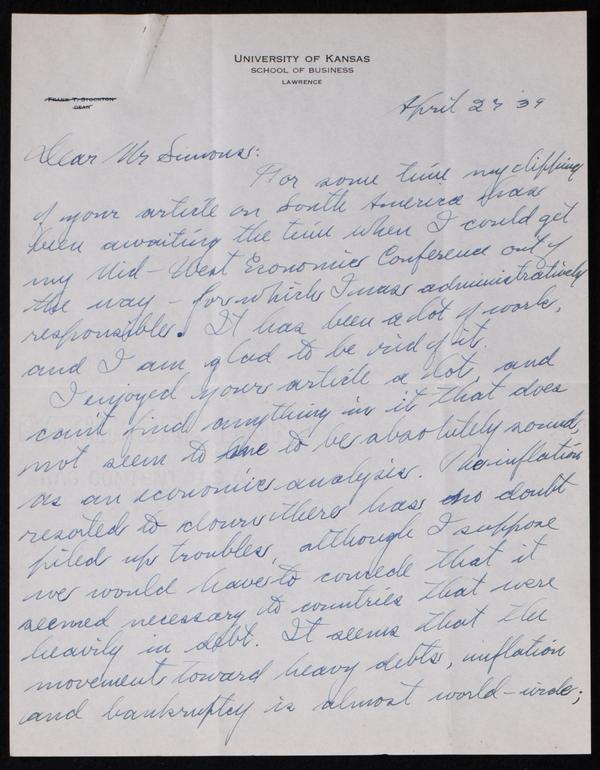 UNIVERSITY OF KANSAS
SCHOOL OF BUSINESS
LAWRENCE
FRANK T. STOCKTON
DEAN
April 27 '39
Dear Mr Simons:
For some time my clipping
of your article on South America has
been awaiting the time when I could get
my Mid-West Economic Conference out of
the way - for which I was administratively
responsible. It has been a lot of work,
and I am glad to be rid of it.
I enjoyed your article a lot, and
can't find anything in it that does
not seem to me to be absolutely sound,
as an economic analysis. The inflation
resorted to down there has no doubt
piled up troubles, although I suppose
we would have to concede that it
seemed necessary to countries that were
heavily in debt. It seems that the
movement toward heavy debts, inflation
and bankruptcy is almost world-wide;